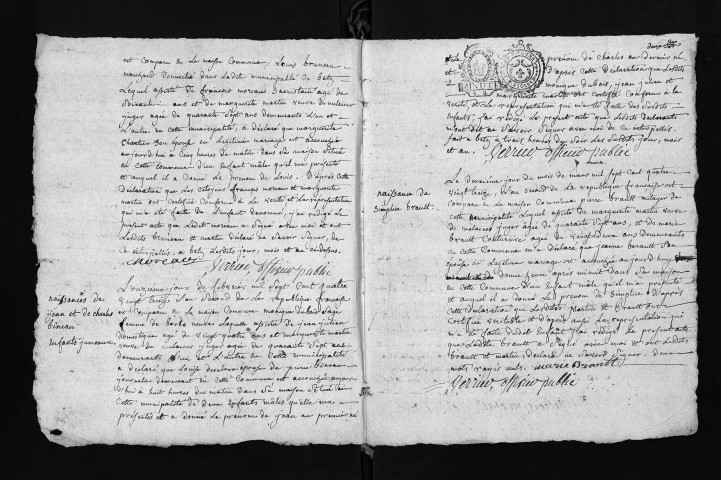 est comparu en la maison commune, Louis bruneau
marchand domicilié dans ladite municipalité de betz
Lequel assisté de françois moreau sacristain agé de
ans et de marguerite martin veuve de melaises
juger agée de quarante sept ans demeurants d'un et
L'autre en cette municipalité, a déclaré que marguerite
Chartier son épouse en legitime mariage est accouchée
aujourd'hui a cinq heures du matin dans sa maison située
en cette commune d'un Enfant mâle qu'il m'a présenté
et auquel il a donné le prenom de Louis. D'après cette
Déclaration que les citoyens françois moreau et marguerite
martin ont certifié conforme à la verité et la représentation
qui m'a été faite de l'enfant denommé, j'ai redigé le
present acte que Ledit moreau a signé avec moi et ont
Lesdits bruneau et martin declaré ne savoir signer, de
ce interpellés. a betz lesdits jour, mois et an cidessus.
moreau
Perrier officier public
naissances de
jean et de charles
bineau
enfants jumeaux.
L'onzieme jour de fabvrier mil sept cent quatre
vingt treize L'an second de la republique française
est comparu en la maison commune monique dubois sage
femme de betz veuve laquelle assistée de jean julien
domestique agé de vingt quatre ans et marguerite martin
veuve de melaises juger agée de quarante sept ans
demeurants L'un et L'autre en cette municipalité
a déclaré que Louise épouse de pierre bineau
journalier demeurant en cette Commune est accouchée
à huit heures du matin dans sa maison située en
cette municipalité de deux Enfants mâles qu'elle m'a
présentés et a donné le prénom de jean au premier né
MINUTE
prénom de Charles au dernier né
D'après cette Déclaration que lesdits
monique dubois, jean julien et
martin ont certifié Conforme à la
verité, et la représentation qui m'a été faite des susdits
enfants, j'ai redigé le present acte que lesdits declarants
m'ont dit ne savoir signer avec moi de ce interpellés.
fait a betz, à trois heures du soir les susdits jour, mois
et an. Perrier officier public
naissance de
Simplice brault.
Le deuxieme jour du mois de mars mil sept cent quatre-
vingt treize, L'an second de la republique française est
Comparu en la maison Commune pierre brault métayer de
cette municipalité Lequel assisté de marguerite martin veuve
de melaises juger agée de quarante sept ans, et de marie
brault Couturiere agée de vingt ans demeurants
en cette Commune m'a déclaré que jeanne son
épouse en Legitime mariage est accouchée aujourd'hui
demie heure après minuit dans sa maison
en cette Commune d'un Enfant mâle qu'il m'a présenté
et auquel il a donné Le prénom de Simplice D'après
cette déclaration que Lesdits martin et brault ont
certifié veritable et d'après la représentation qui
m'a été faite dudit Enfant j'ai redigé le present acte
que Ladite brault a signé avec moi et ont Lesdits
brault et martin déclaré ne savoir signer.
mots rayés nuls. marie Brault
Perrier officier public